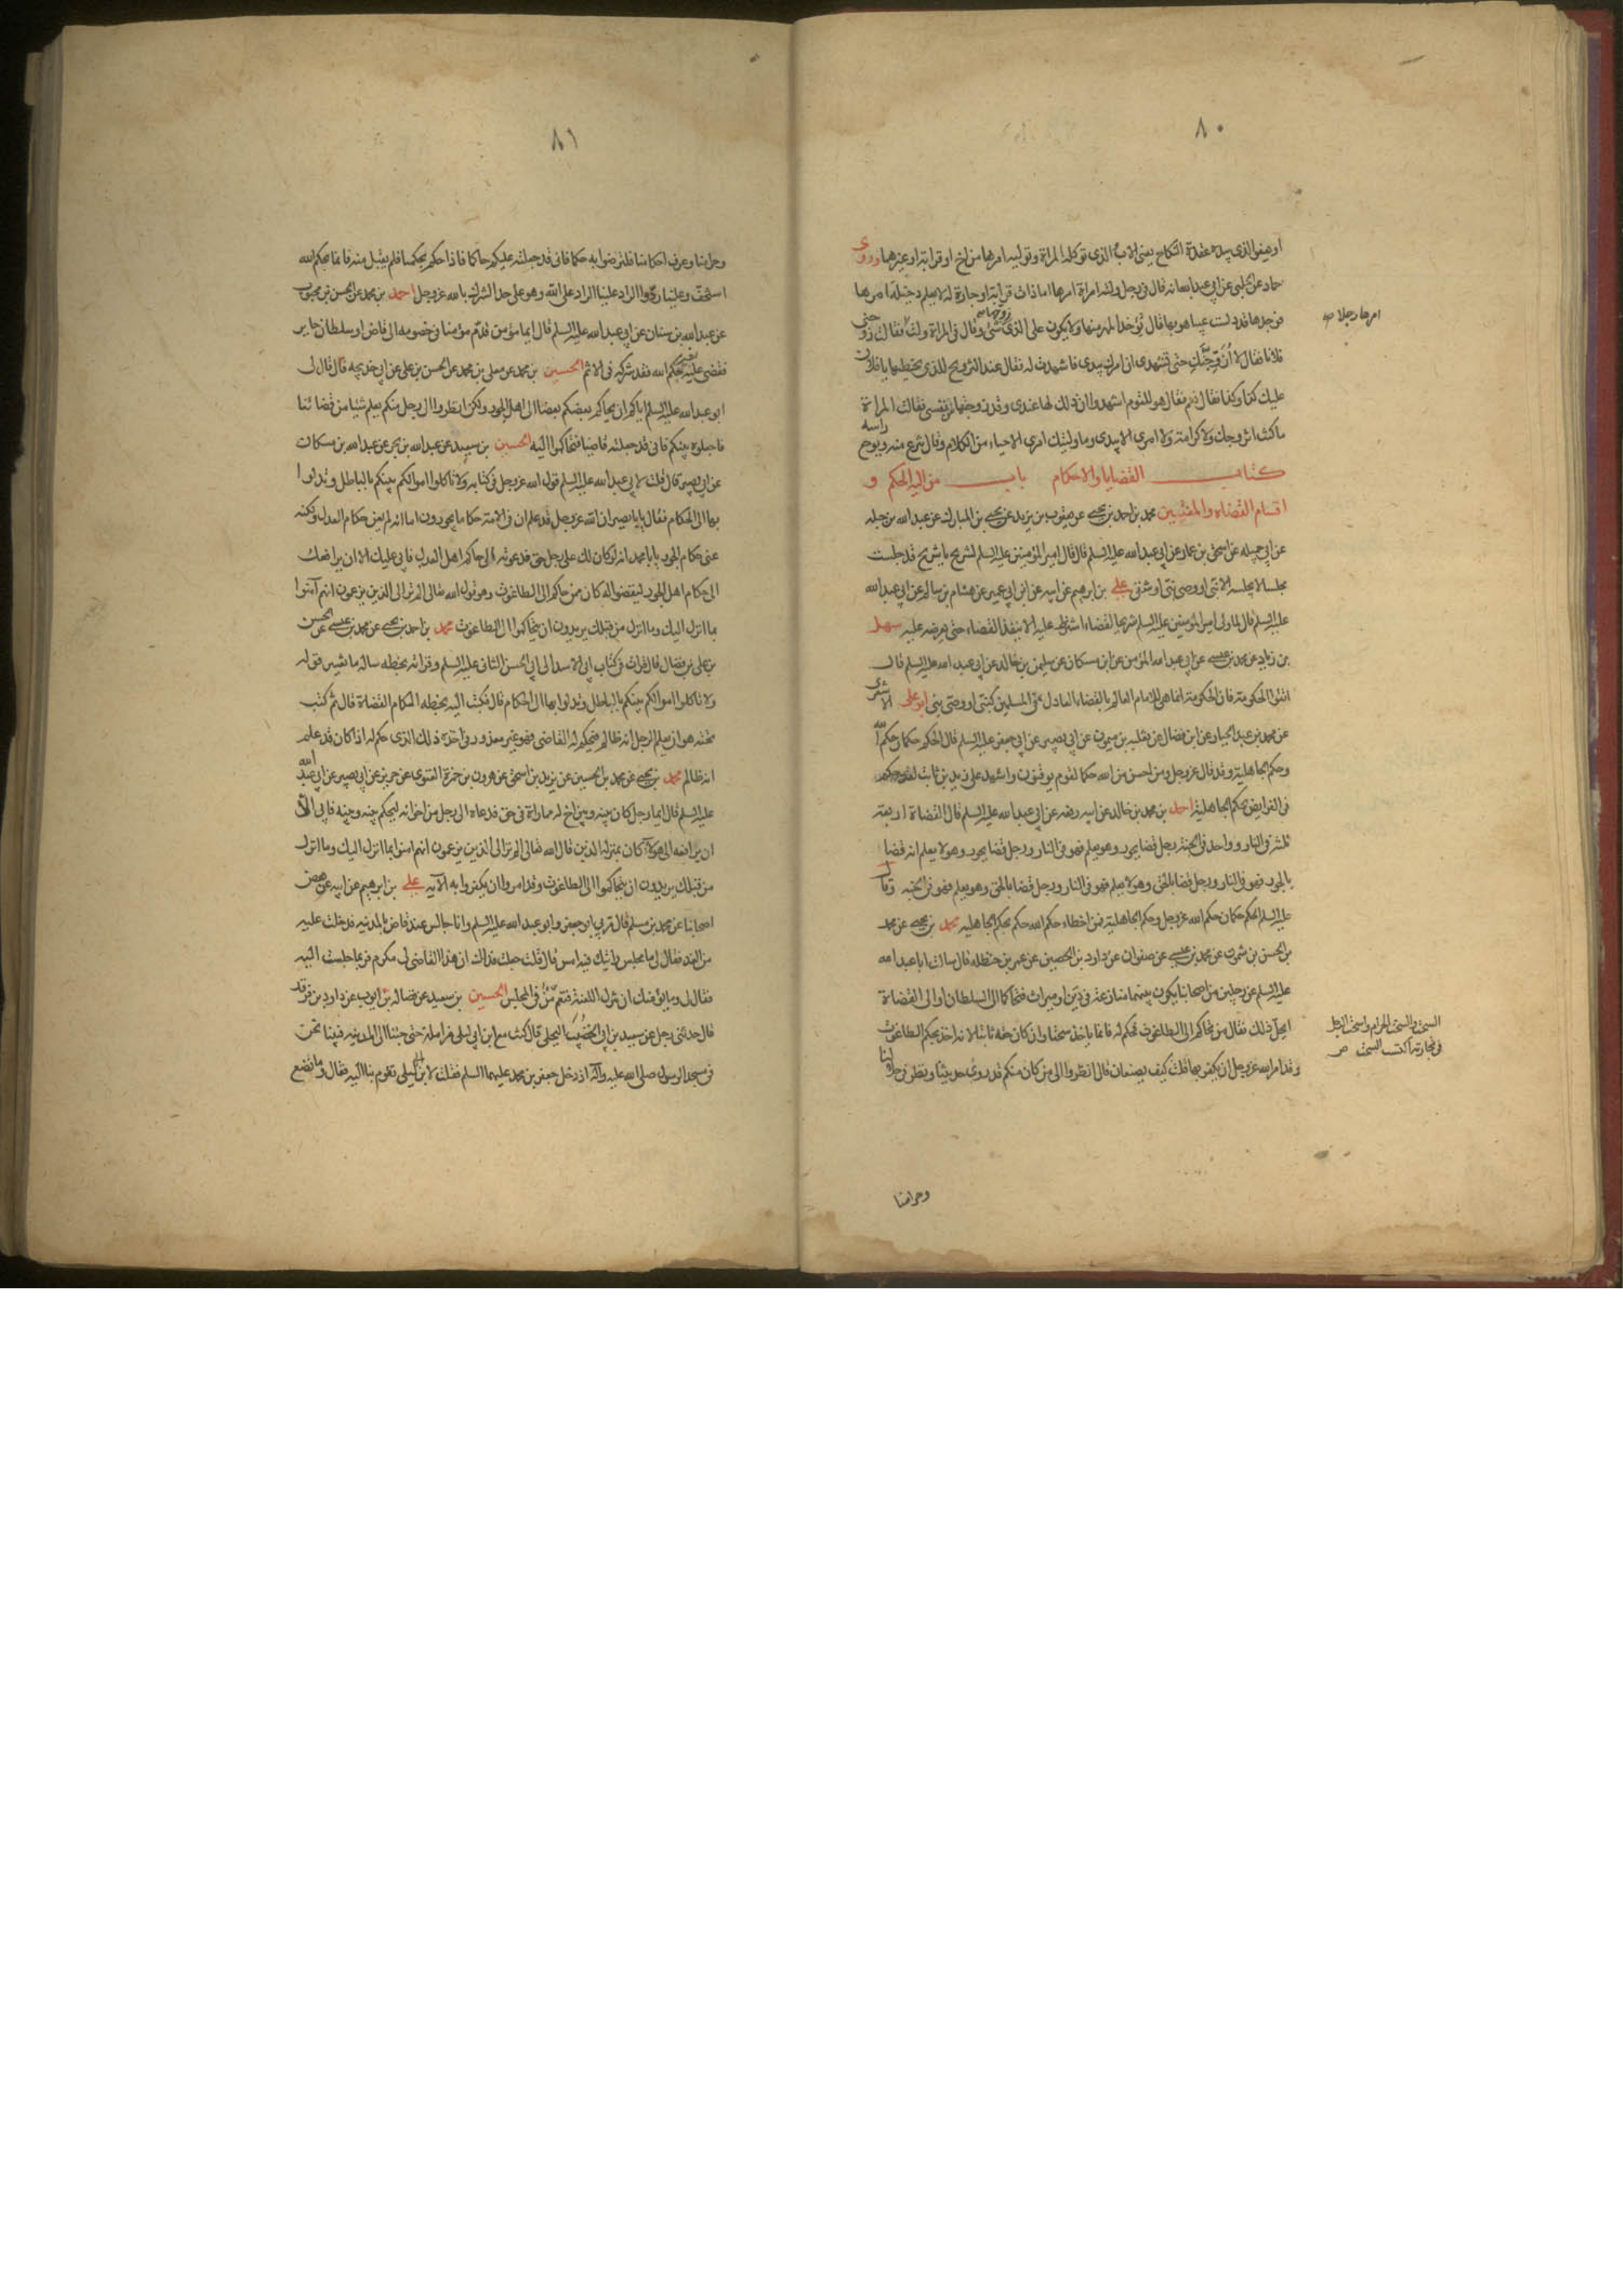 ٨٠
او يعفو الذى بيده عقدة النكاح يعنى الاب والذى توكله المراة وتوليه امرها من اخ او قرابة او غيرهما وروى
حماد عن الحلبى عن ابى عبدالله انه قال فى رجل ولته امراة امرها اما ذات قرابة او جارة له لا يعلم دخيلة امرها
فوجدها قد دلست عيبا هو بها قال يؤخذ المهر منها ولا يكون على الذى زوجها شئ وقال فى المراة ولت امرها رجلا فقالت زوجنى
فلانا فقال لا ازوجك حتى تشهدى ان امرك بيدى فاشهدت له فقال عند التزويج للذى يخطبها يا فلان
عليك كذا وكذا فقال نعم فقال هو للقوم اشهدوا ان ذلك لها عندى وقد زوجتها من نفسى فقالت المراة
ما كنت اتزوجك ولا كرامة ولا امرى الا بيدى وما وليتك امرى الا حياء من الكلام وقال تنزع منه ويوجع راسه
كتاب القضايا والاحكام باب من اليه الحكم و
اقسام القضاه والمفتيين محمد بن احمد بن يحيى عن يعقوب بن يزيد عن يحيى بن المبارك عن عبدالله بن جبله
عن ابى جميله عن اسحق بن عمار عن ابى عبدالله عليه السلم قال قال امير المؤمنين عليه السلم لشريح يا شريح قد جلست
مجلسا لا يجلسه الا نبى او وصى نبى او شقى على بن ابرهيم عن ابيه عن ابن ابى عمير عن هشام بن سالم عن ابى عبدالله
عليه السلم قال لما ولى امير المؤمنين عليه السلم شريحا القضاء اشترط عليه الا ينفذ القضاء حتى يعرضه عليه سهل
بن زياد عن محمد بن عيسى عن ابى عبدالله المؤمن عن ابن مسكان عن سليمن بن خالد عن ابى عبدالله عليه السلم قال
اتقوا الحكومة فان الحكومة انما هى للامام العالم بالقضاء العادل فى المسلمين كنبى او وصى نبى ابو على الاشعرى
عن محمد بن عبد الجبار عن ابن فضال عن ثعلبه بن ميمون عن ابى بصير عن ابى جعفر عليه السلم قال الحكم حكمان حكم الله
وحكم الجاهلية وقد قال عز وجل ومن احسن من الله حكما لقوم يوقنون واشهد على زيد بن ثابت لقد حكم
فى الفرايض بحكم الجاهلية احمد بن محمد بن خالد عن ابيه رفعه عن ابى عبدالله عليه السلم قال القضاة اربعة
ثلثة فى النار وواحد فى الجنة رجل قضا بجور وهو يعلم فهو فى النار ورجل قضا بجور وهو لا يعلم انه قضا
بالجور فهو فى النار ورجل قضا بالحق وهو لا يعلم فهو فى النار ورجل قضا بالحق وهو يعلم فهو فى الجنه وقال
عليه السلم الحكم حكمان حكم الله عز وجل وحكم الجاهلية فمن اخطاء حكم الله حكم بحكم الجاهليه محمد بن يحيى عن محمد
بن الحسن بن شمون عن محمد بن عيسى عن صفوان عن داود بن الحصين عن عمر بن حنظله قال سالت ابا عبدالله
عليه السلم عن رجلين من اصحابنا يكون بينهما منازعة فى دين او ميراث فتحاكما الى السلطان او الى القضاة
ايحل ذلك فقال من تحاكم الى الطاغوت فحكم له فانما ياخذ سحتا وان كان حقه ثابتا لانه اخذ بحكم الطاغوت
وقد امر الله عز وجل ان يكفر بها قلت كيف يصنعان قال انظروا الى من كان منكم قد روى حديثنا ونظر فى حلالنا
امرها رجلا صح
السحت والسحت الحرام واسحت الرجل
فى تجارته اكتسب السحت ص
وحرامنا
٨١
وحرامنا وعرف احكامنا فلترضوا به حكما فانى قد جعلته عليكم حاكما فاذا حكم بحكمنا فلم يقبل منه فانما بحكم الله
استخف وعلينا رد والراد علينا الراد على الله وهو على حد الشرك بالله عز وجل احمد بن محمد عن الحسن بن محبوب
عن عبدالله بن سنان عن ابى عبدالله عليه السلم قال ايما مؤمن قدم مؤمنا فى خصومه الى قاض او سلطان جاير
فقضى عليه بغير حكم الله فقد شركه فى الاثم الحسين بن محمد عن معلى بن محمد عن الحسن بن على عن ابى خديجه قال قال لى
ابو عبدالله عليه السلم اياكم ان يحاكم بعضكم بعضا الى اهل الجور ولكن انظروا الى رجل منكم يعلم شيئا من قضائنا
فاجعلوه بينكم فانى قد جعلته قاضيا فتحاكموا اليه الحسين بن سعيد عن عبدالله بن بحر عن عبدالله بن مسكان
عن ابى بصير قال قلت لابى عبدالله عليه السلم قول الله عز وجل فى كتابه ولا تاكلوا اموالكم بينكم بالباطل وتدلوا
بها الى الحكام فقال يا بابصير ان الله عز وجل قد علم ان فى الامة حكاما يجورون اما انه لم يعن حكام العدل ولكنه
عنى حكام الجور يا بامحمد انه لو كان لك على رجل حق فدعوته الى حاكم اهل العدل فابى عليك الا ان يرافعك
الى حكام اهل الجور ليقضوا له كان ممن حاكم الى الطاغوت وهو قول الله تعالى الم تر الى الذين يزعمون انهم آمنوا
بما انزل اليك وما انزل من قبلك يريدون ان يتحاكموا الى الطاغوت محمد بن احمد بن يحيى عن محمد بن عيسى عن الحسن
بن على بن فضال قال قرات فى كتاب ابى الاسد الى ابى الحسن الثانى عليه السلم وقراته بخطه ساله ما تفسير قوله
ولا تاكلوا اموالكم بينكم بالباطل وتدلوا بها الى الحكام قال فكتب اليه بخطه الحكام القضاة قال ثم كتب
تحته هو ان يعلم الرجل انه ظالم فيحكم له القاضى فهو غير معذور فى اخذه ذلك الذى حكم له اذا كان قد علم
انه ظالم محمد بن يحيى عن محمد بن الحسين عن يزيد بن اسحق عن هرون بن حمزة الغنوى عن حريز عن ابى بصير عن ابى عبدالله
عليه السلم قال ايما رجل كان بينه وبين اخ له مماراة فى حق فدعاه الى رجل من اخوانه ليحكم بينه وبينه فابى الا
ان يرافعه الى هؤلاء كان بمنزلة الذين قال الله تعالى الم تر الى الذين يزعمون انهم امنوا بما انزل اليك وما انزل
من قبلك يريدون ان يتحاكموا الى الطاغوت وقد امروا ان يكفروا به الآيه على بن ابرهيم عن ابيه عن بعض
اصحابنا عن محمد بن مسلم قال مر بى ابو جعفر وابو عبدالله عليه السلم وانا جالس عند قاض بالمدينه فدخلت عليه
من الغد فقال لى ما مجلس رايتك فيه امس قال قلت جعلت فداك ان هذا القاضى لى مكرم فربما جلست اليه
فقال لى وما يؤمنك ان تنزل اللعنة فتعم من فى المجلس الحسين بن سعيد عن فضاله بن ايوب عن داود بن فرقد
قال حدثنى رجل عن سعيد بن ابى الخضيب البجلى قال كنت مع ابن ابى ليلى مزامله حتى جئنا الى المدينه فبينا نحن
فى مسجد الرسول صلى الله عليه وآله اذ دخل جعفر بن محمد عليهما السلم فقلت لابن ابى ليلى تقوم بنا اليه فقال وما نصنع